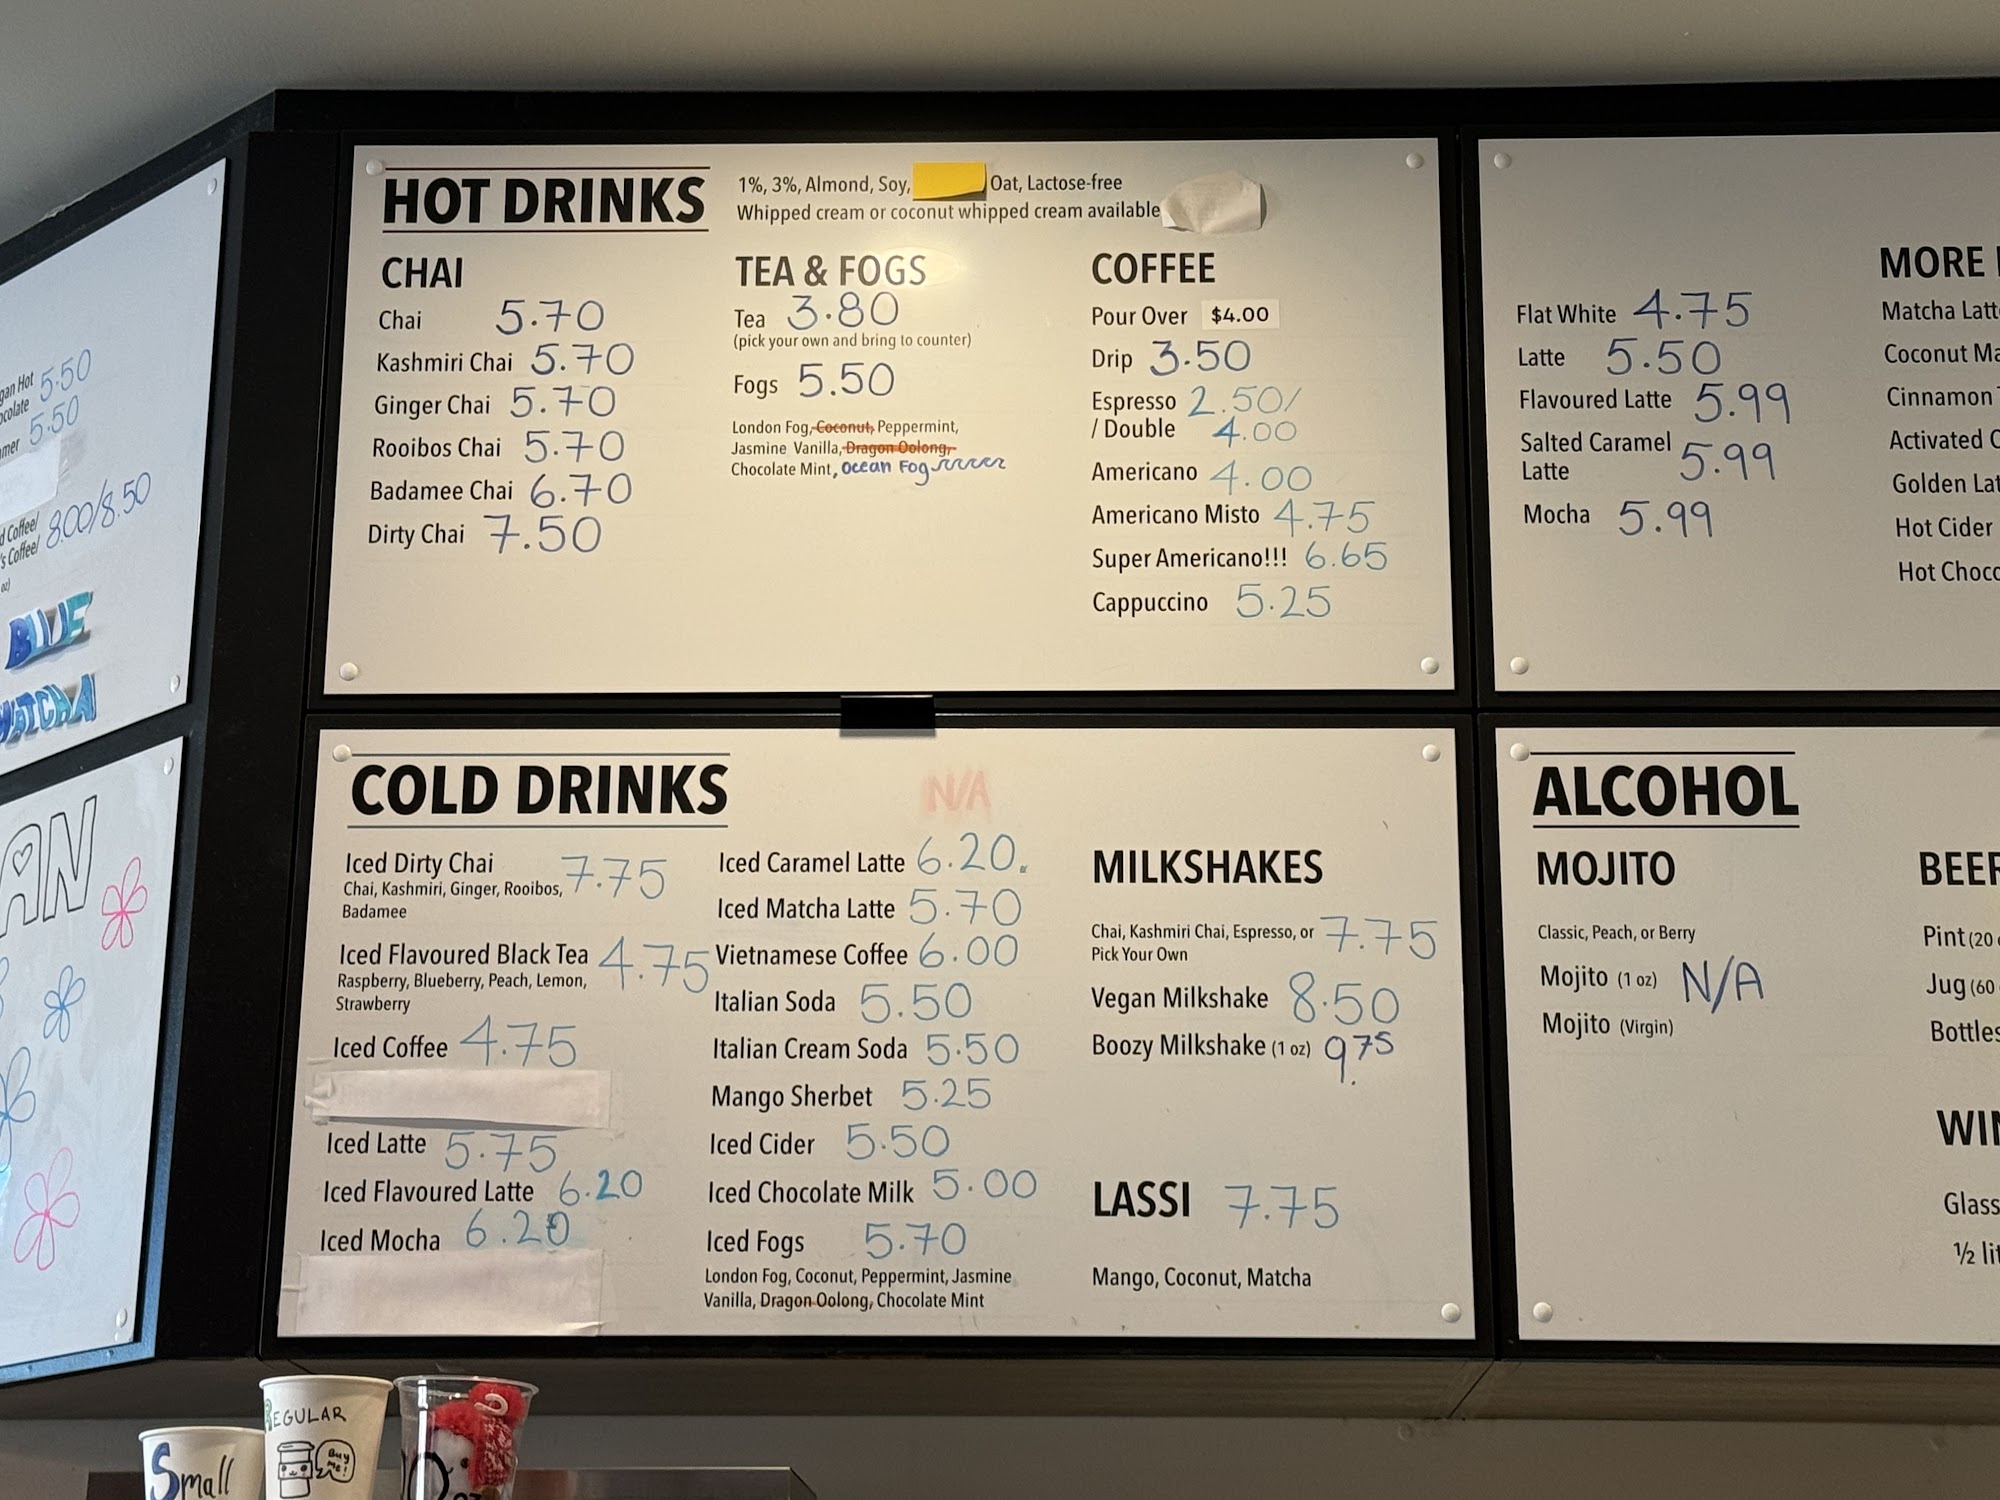 5.50
5.50
8.00/8.50
BLUE
MATCHA
HOT DRINKS
1%, 3%, Almond, Soy, Oat, Lactose-free
Whipped cream or coconut whipped cream available
CHAI
Chai 5.70
Kashmiri Chai 5.70
Ginger Chai 5.70
Rooibos Chai 5.70
Badamee Chai 6.70
Dirty Chai 7.50
TEA & FOGS
Tea 3.80
(pick your own and bring to counter)
Fogs 5.50
London Fog, Coconut, Peppermint,
Jasmine Vanilla, Dragon Oolong,
Chocolate Mint, Ocean Fog
COFFEE
Pour Over $4.00
Drip 3.50
Espresso 2.50/
/ Double 4.00
Americano 4.00
Americano Misto 4.75
Super Americano!!! 6.65
Cappuccino 5.25
Flat White 4.75
Latte 5.50
Flavoured Latte 5.99
Salted Caramel
Latte 5.99
Mocha 5.99
MORE
Matcha
Coconut
Cinnamon
Activated
Golden
Hot Cider
Hot
COLD DRINKS
N/A
Iced Dirty Chai 7.75
Chai, Kashmiri, Ginger, Rooibos,
Badamee
Iced Flavoured Black Tea 4.75
Raspberry, Blueberry, Peach, Lemon,
Strawberry
Iced Coffee 4.75
Iced Latte 5.75
Iced Flavoured Latte 6.20
Iced Mocha 6.20
Iced Caramel Latte 6.20.
Iced Matcha Latte 5.70
Vietnamese Coffee 6.00
Italian Soda 5.50
Italian Cream Soda 5.50
Mango Sherbet 5.25
Iced Cider 5.50
Iced Chocolate Milk 5.00
Iced Fogs 5.70
London Fog, Coconut, Peppermint, Jasmine
Vanilla, Dragon Oolong, Chocolate Mint
MILKSHAKES
Chai, Kashmiri Chai, Espresso, or 7.75
Pick Your Own
Vegan Milkshake 8.50
Boozy Milkshake (1 oz) 9.75
LASSI 7.75
Mango, Coconut, Matcha
ALCOHOL
MOJITO
Classic, Peach, or Berry
Mojito (1 oz) N/A
Mojito (Virgin)
BEER
Pint (20
Jug (60
Bottles
Glass
½
REGULAR
Buy
me!
Small